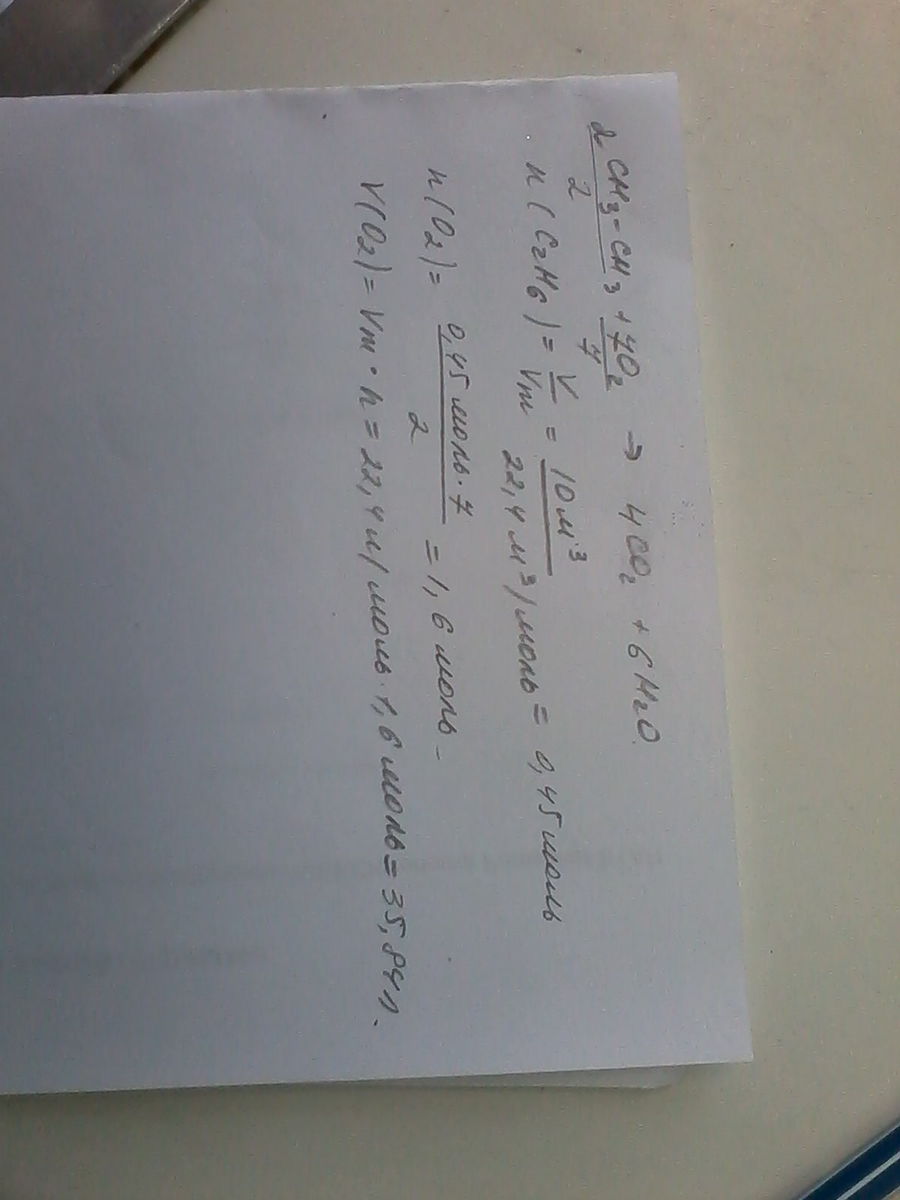 2CH3-CH3 + 7O2 → 4CO2 + 6H2O.
2 7
n(C2H6) = V/Vm = 10м³/22,4м³/моль = 0,45моль
n(O2) = 0,45моль·7/2 = 1,6моль-
V(O2) = Vm·n = 22,4л/моль·1,6моль = 35,84л.